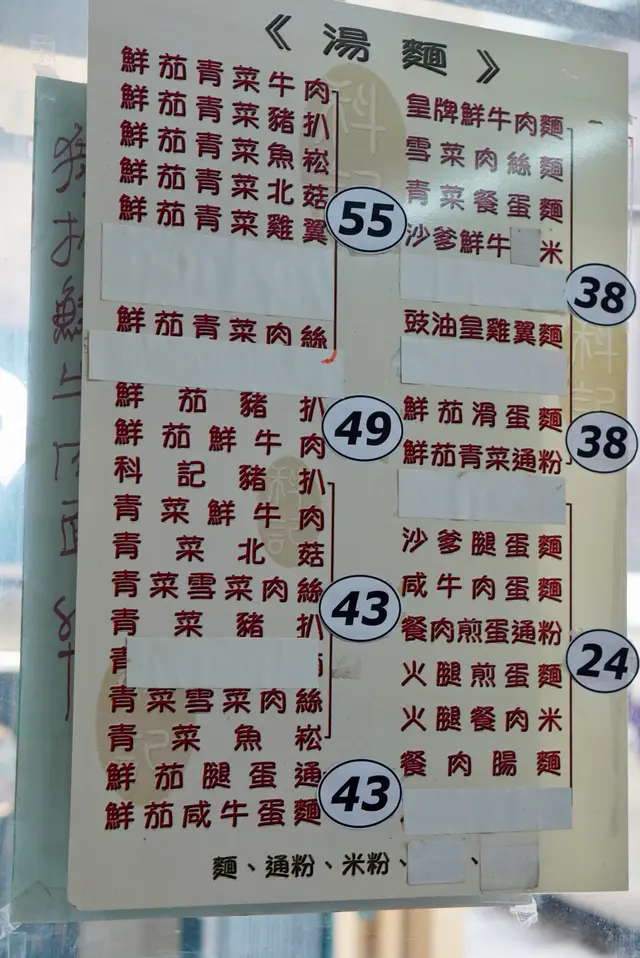 《湯麵》
鮮茄青菜牛肉
鮮茄青菜豬扒
鮮茄青菜魚崧
鮮茄青菜北菇
鮮茄青菜雞翼
55
鮮茄青菜肉絲
鮮茄豬扒
鮮茄鮮牛肉
49
科記豬扒
青菜鮮牛肉
青菜北菇
青菜雪菜肉絲
青菜豬扒
43
青
青菜雪菜肉絲
青菜魚崧
鮮茄腿蛋通
鮮茄咸牛蛋麵
43
皇牌鮮牛肉麵
雪菜肉絲麵
青菜餐蛋麵
沙爹鮮牛 米
38
豉油皇雞翼麵
鮮茄滑蛋麵
鮮茄青菜通粉
38
沙爹腿蛋麵
咸牛肉蛋麵
餐肉煎蛋通粉
火腿煎蛋麵
24
火腿餐肉米
餐肉腸麵
麵、通粉、米粉、 、
科記
科記
科記